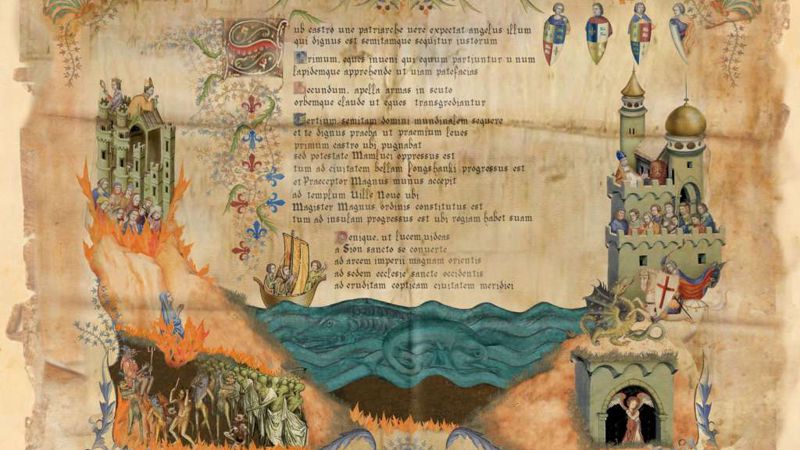 Sub castro une patriarche vere expectat angelus illum
qui dignus est semitamque sequitur iustorum
Primum, eques inveni qui equum partiuntur unum
lapidemque apprehende ut viam patefacias
Secundum, apella armas in scuto
orbemque claude ut eques transgrediantur
Tertium, semitam domini mundinalem sequere
et te dignus praeba ut praemium leves
primum castro ubi pugnabat
sed potestate Mamluci oppressus est
tum ad civitatem bellam Longshanki progressus est
et Praeceptor Magnus munus accepit
ad templum Ville Novo ubi
Magister Magnus ordinis constitutus est
tum ad insulam progressus est ubi regiam habet suam
Denique, ut lucem videas
a Sion sancto se converte
ad arcem imperii magnam orientis
ad sedem ecclesie sancte occidentis
ad eruditam copticam civitatem meridiei